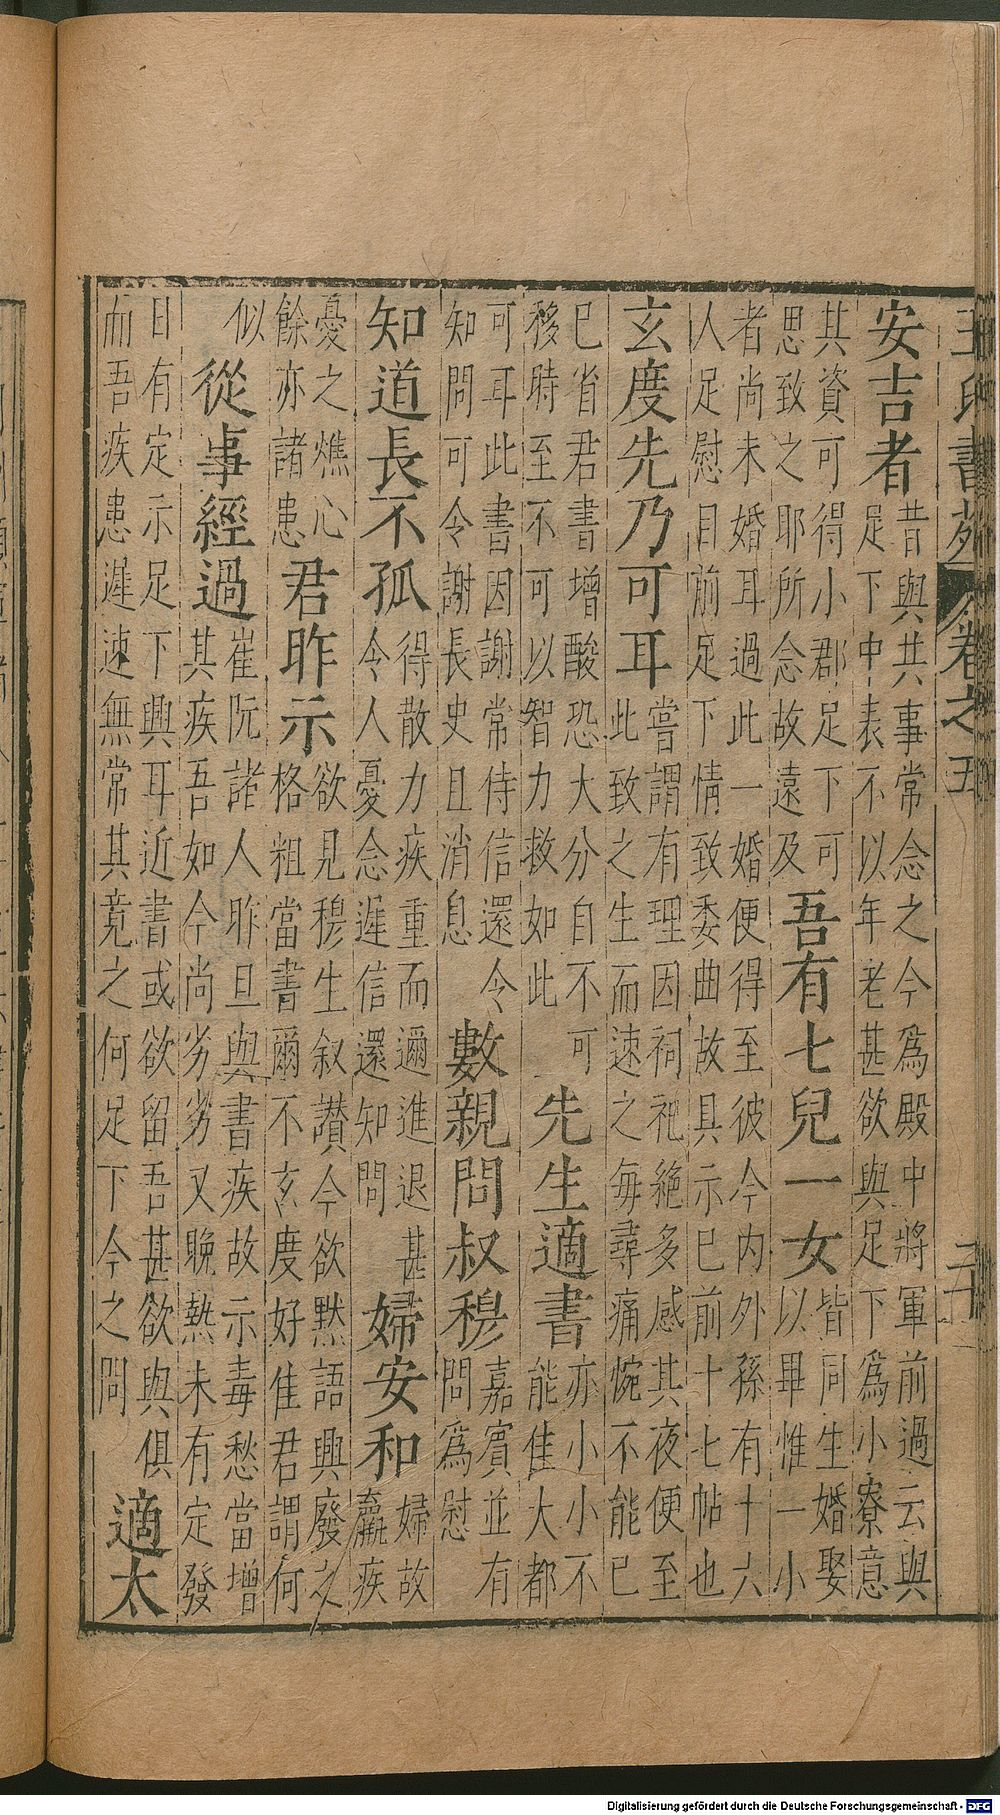 王氏書苑 卷之五 二十
安吉者
昔與共事常念之今為殿中將軍前過云與
足下中表不以年老甚欲與足下為小寮意
其資可得小郡足下可
思致之耶所念故遠及
吾有七兒一女
皆同生婚娶
以畢惟一小
者尚未婚耳過此一婚便得至彼今內外孫有十六
人足慰目前足下情致委曲故具示已前十七帖也
玄度先乃可耳
嘗謂有理因祠祀絶多感其夜便至
此致之生而速之每尋痛惋不能已
已省君書增酸恐大分自不可
移時至不可以智力救如此
先生適書
亦小小不
能佳大都
可耳此書因謝常侍信還令
知問可令謝長史且消息
數親問叔穆
嘉賓並有
問為慰
知道長不孤
得散力疾重而邇進退甚
令人憂念遲信還知問
婦安和
婦故
羸疾
憂之燋心
餘亦諸患
君昨示
欲見穆生叙讃今欲黙語興廢之
格粗當書爾不玄度好佳君謂何
似
從事經過
崔阮諸人昨旦與書疾故示毒愁當增
其疾吾如今尚劣劣又晚熱未有定發
日有定示足下興耳近書或欲留吾甚欲與俱
而吾疾患遲速無常其竟之何足下今之問
適太
Digitalisierung gefördert durch die Deutsche Forschungsgemeinschaft - DFG